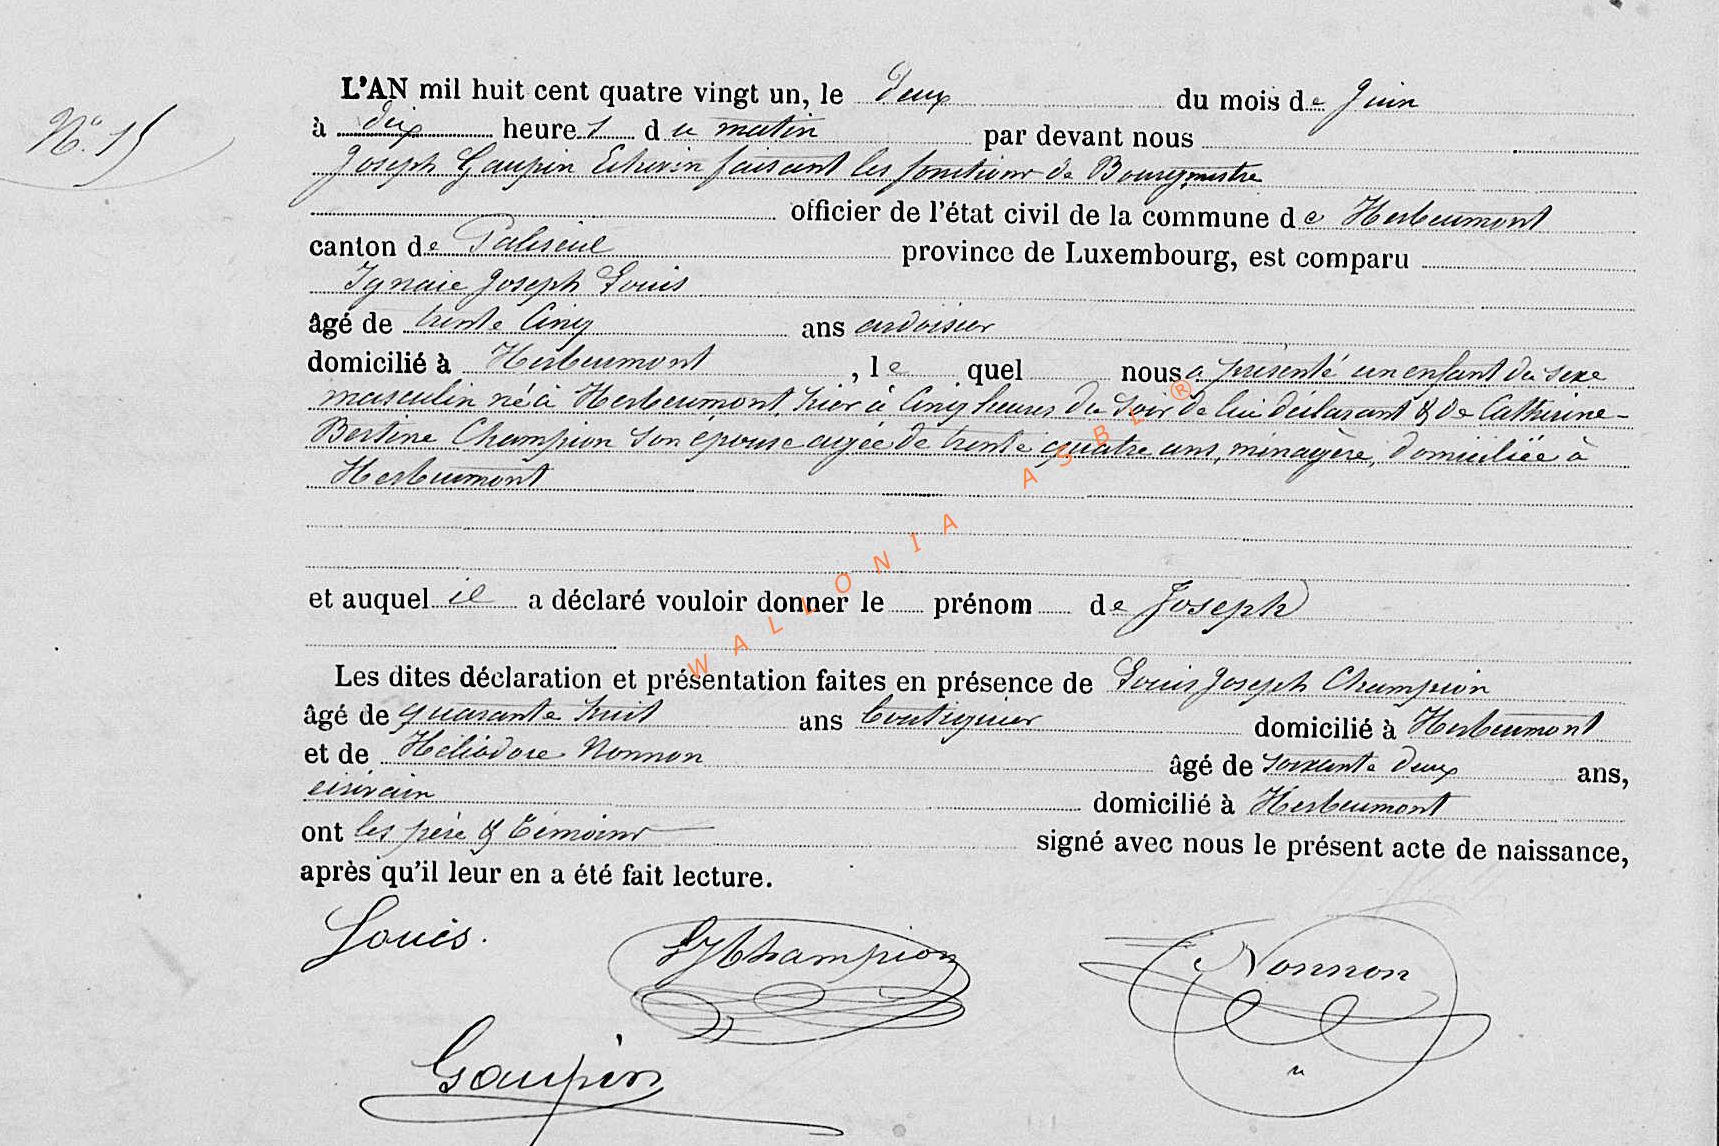 N° 15
L'AN mil huit cent quatre vingt un, le deux du mois de Juin
à dix heures du matin par devant nous
Joseph Gaupin Echevin faisant les fonctions de Bourgmestre
officier de l'état civil de la commune de Herbeumont
canton de Paliseul province de Luxembourg, est comparu
Ignace Joseph Louis
âgé de trente cinq ans ardoisier
domicilié à Herbeumont, le quel nous a présenté un enfant du sexe
masculin né à Herbeumont, hier à cinq heures du soir de lui déclarant & de Catherine-
Bertine Champion son épouse agée de trente quatre ans, ménagère, domiciliée à
Herbeumont
et auquel il a déclaré vouloir donner le prénom de Joseph
Les dites déclaration et présentation faites en présence de Louis Joseph Champion
âgé de quarante huit ans boutiquier domicilié à Herbeumont
et de Héliodore Nonnon âgé de soixante deux ans,
écrivain domicilié à Herbeumont
ont les père & témoins signé avec nous le présent acte de naissance,
après qu'il leur en a été fait lecture.
Louis. LJChampion Nonnon
Gaupin
WALLONIA ASBL®